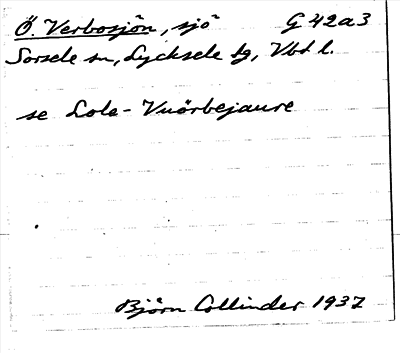 Ö. Verbosjön, sjö G 42a3
Sorsele sn, Lycksele tg, Vbt l.
se Lole-Vuörbejaure
Björn Collinder 1937